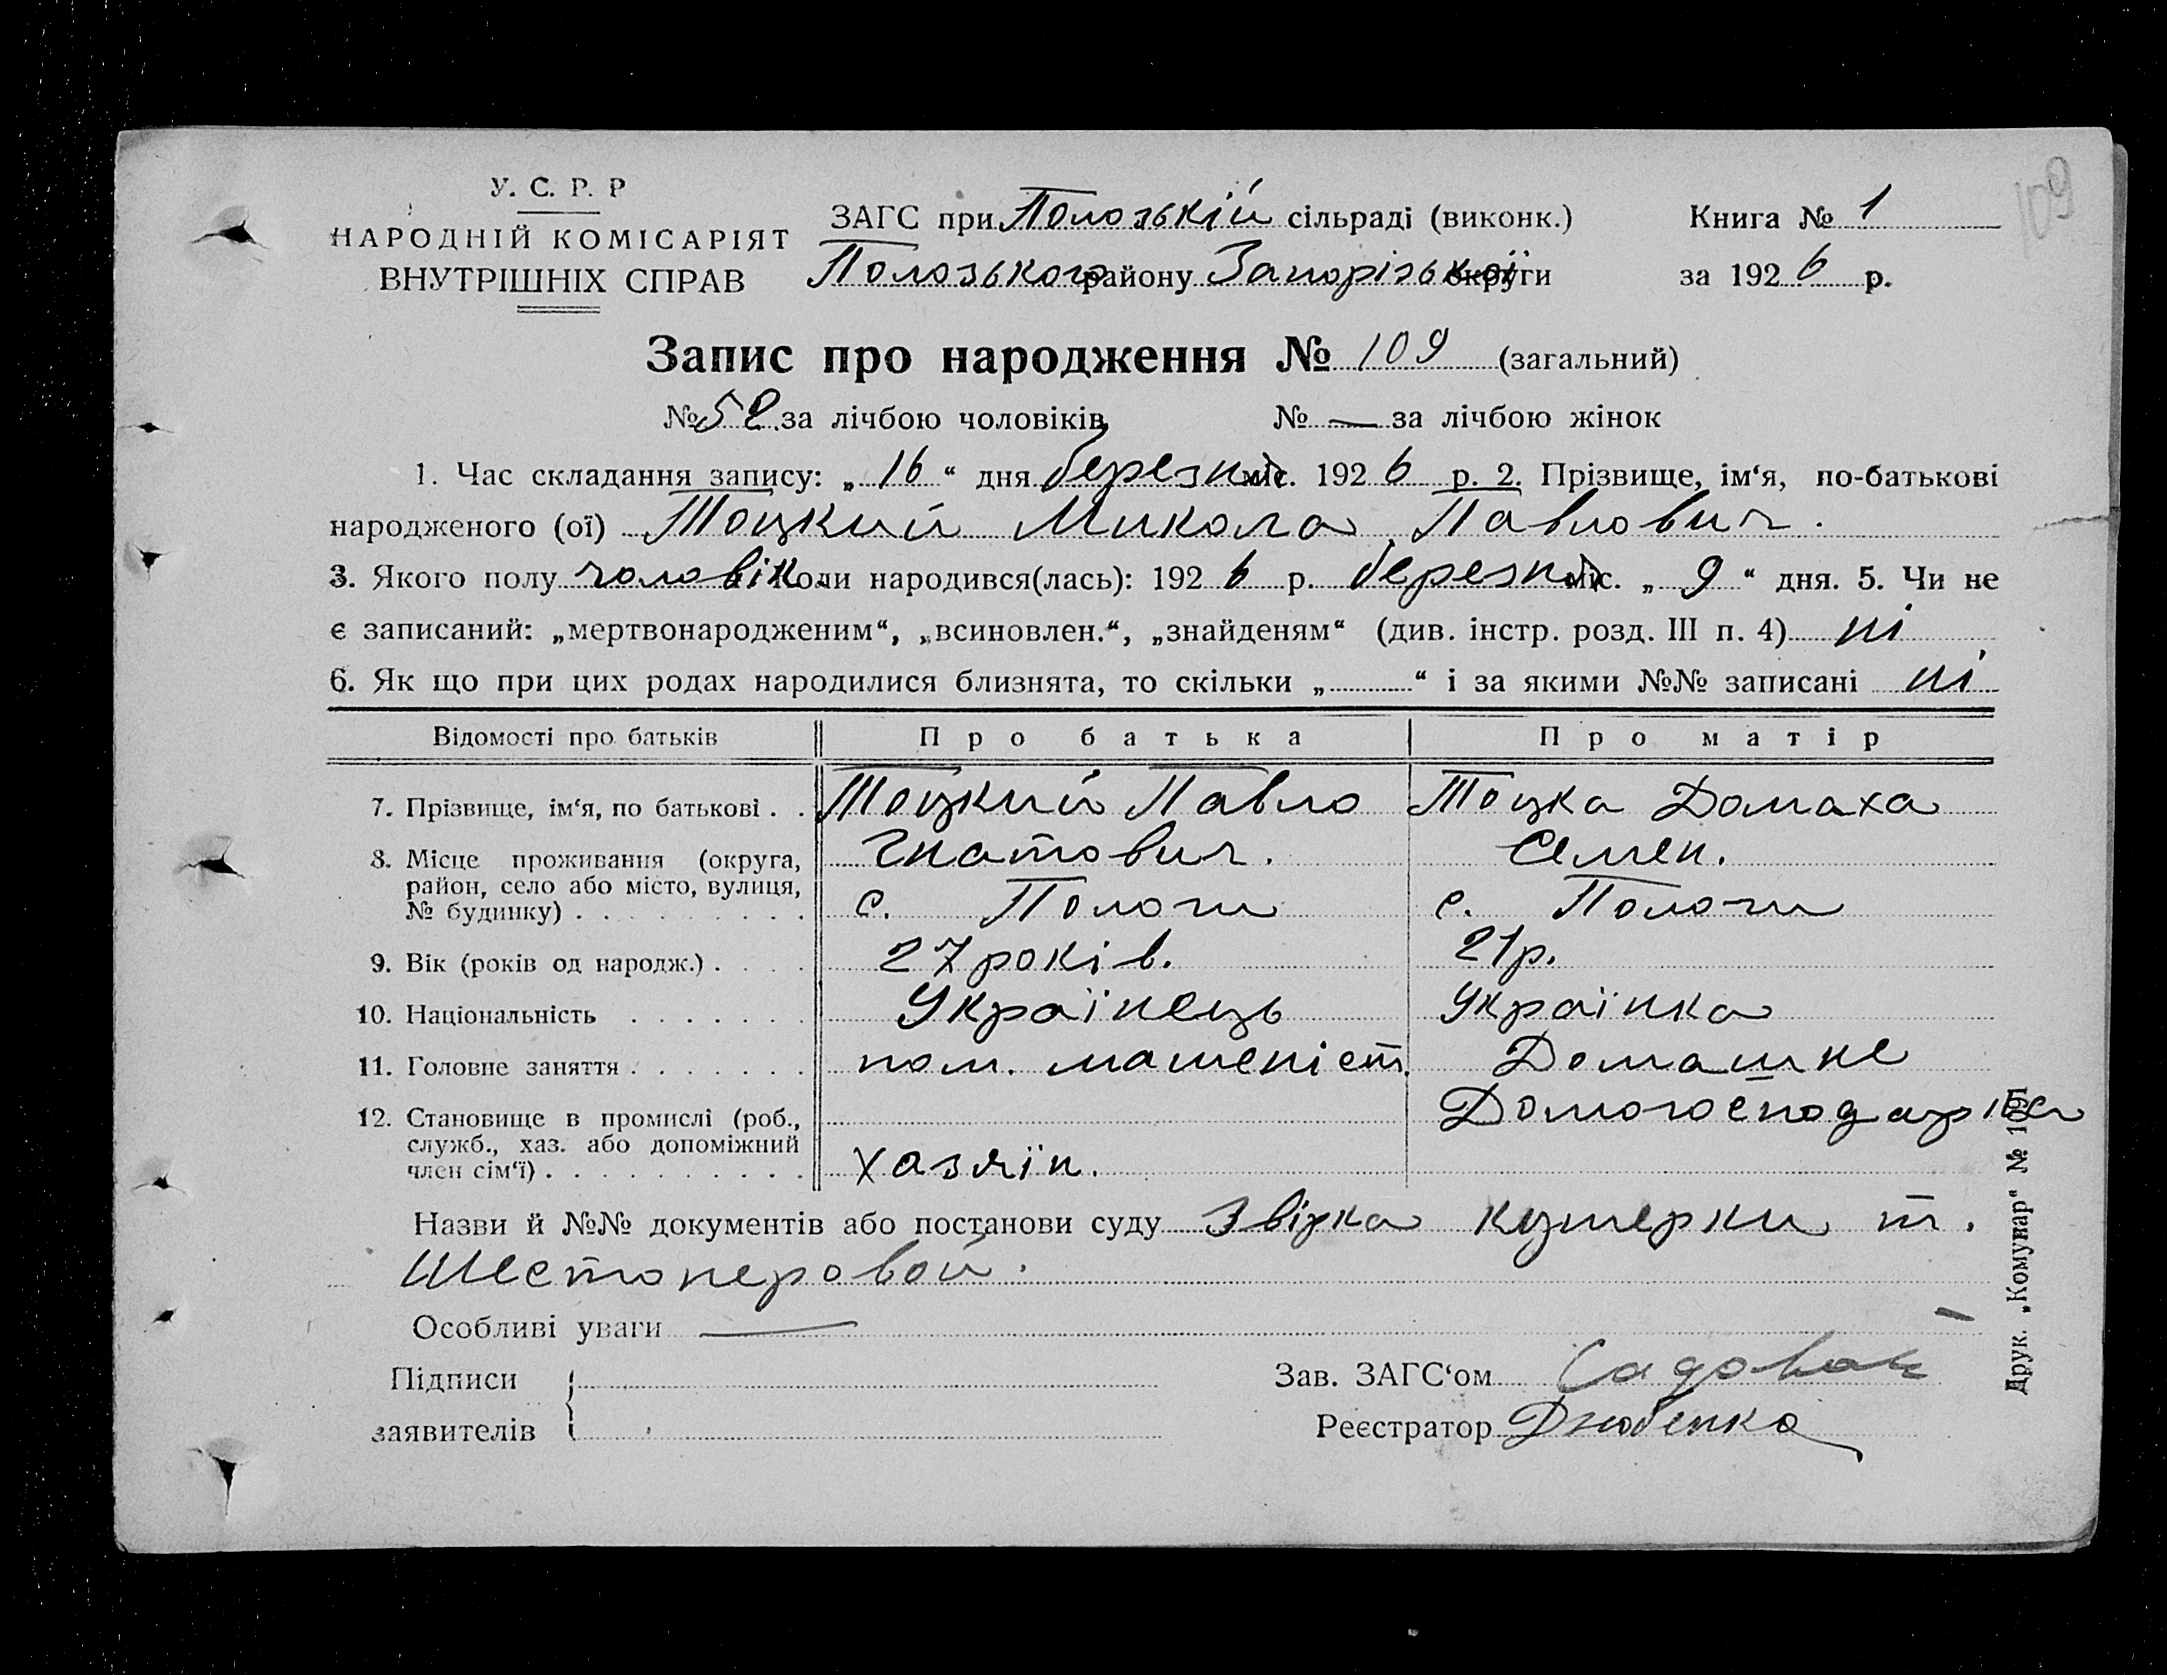 109
У. С. Р. Р
НАРОДНІЙ КОМІСАРІЯТ
ВНУТРІШНІХ СПРАВ
ЗАГС при Полозькій сільраді (виконк.)
Полозького району Запорізької округи
Книга № 1
за 1926 р.
Запис про народження № 109 (загальний)
№ 52 за лічбою чоловіків № — за лічбою жінок
1. Час складання запису: „16“ дня березня міс. 1926 р. 2. Прізвище, ім‘я, по-батькові
народженого (ої) Тоцкий Микола Павлович.
3. Якого полу чоловік Коли народився(лась): 1926 р. березня міс. „9“ дня. 5. Чи не
є записаний: „мертвонародженим“, „всиновлен.“, „знайденям“ (див. інстр. розд. III п. 4) ні
6. Як що при цих родах народилися близнята, то скільки „ “ і за якими №№ записані ні
Відомості про батьків Про батька Про матір
7. Прізвище, ім‘я, по батькові . . Тоцкий Павло Тоцка Домаха
Гнатович. Семен.
8. Місце проживання (округа,
район, село або місто, вулиця,
№ будинку) . . . . . . . . . с. Пологи с. Пологи
9. Вік (років од народж.) . . . . 27 років. 21 р.
10. Національність . . . . . . . Українець Українка
11. Головне заняття . . . . . . . пом. машеніст. Домашнє
Домогосподарка
12. Становище в промислі (роб.,
служб., хаз. або допоміжний
член сім‘ї) . . . . . . . . . . хазяїн.
Назви й №№ документів або постанови суду Звірка кушерки т.
Шестоперовой.
Особливі уваги —
Підписи
заявителів
Зав. ЗАГС‘ом Садовой
Реєстратор Дзюбенко
Друк. „Комунар“ № 1091